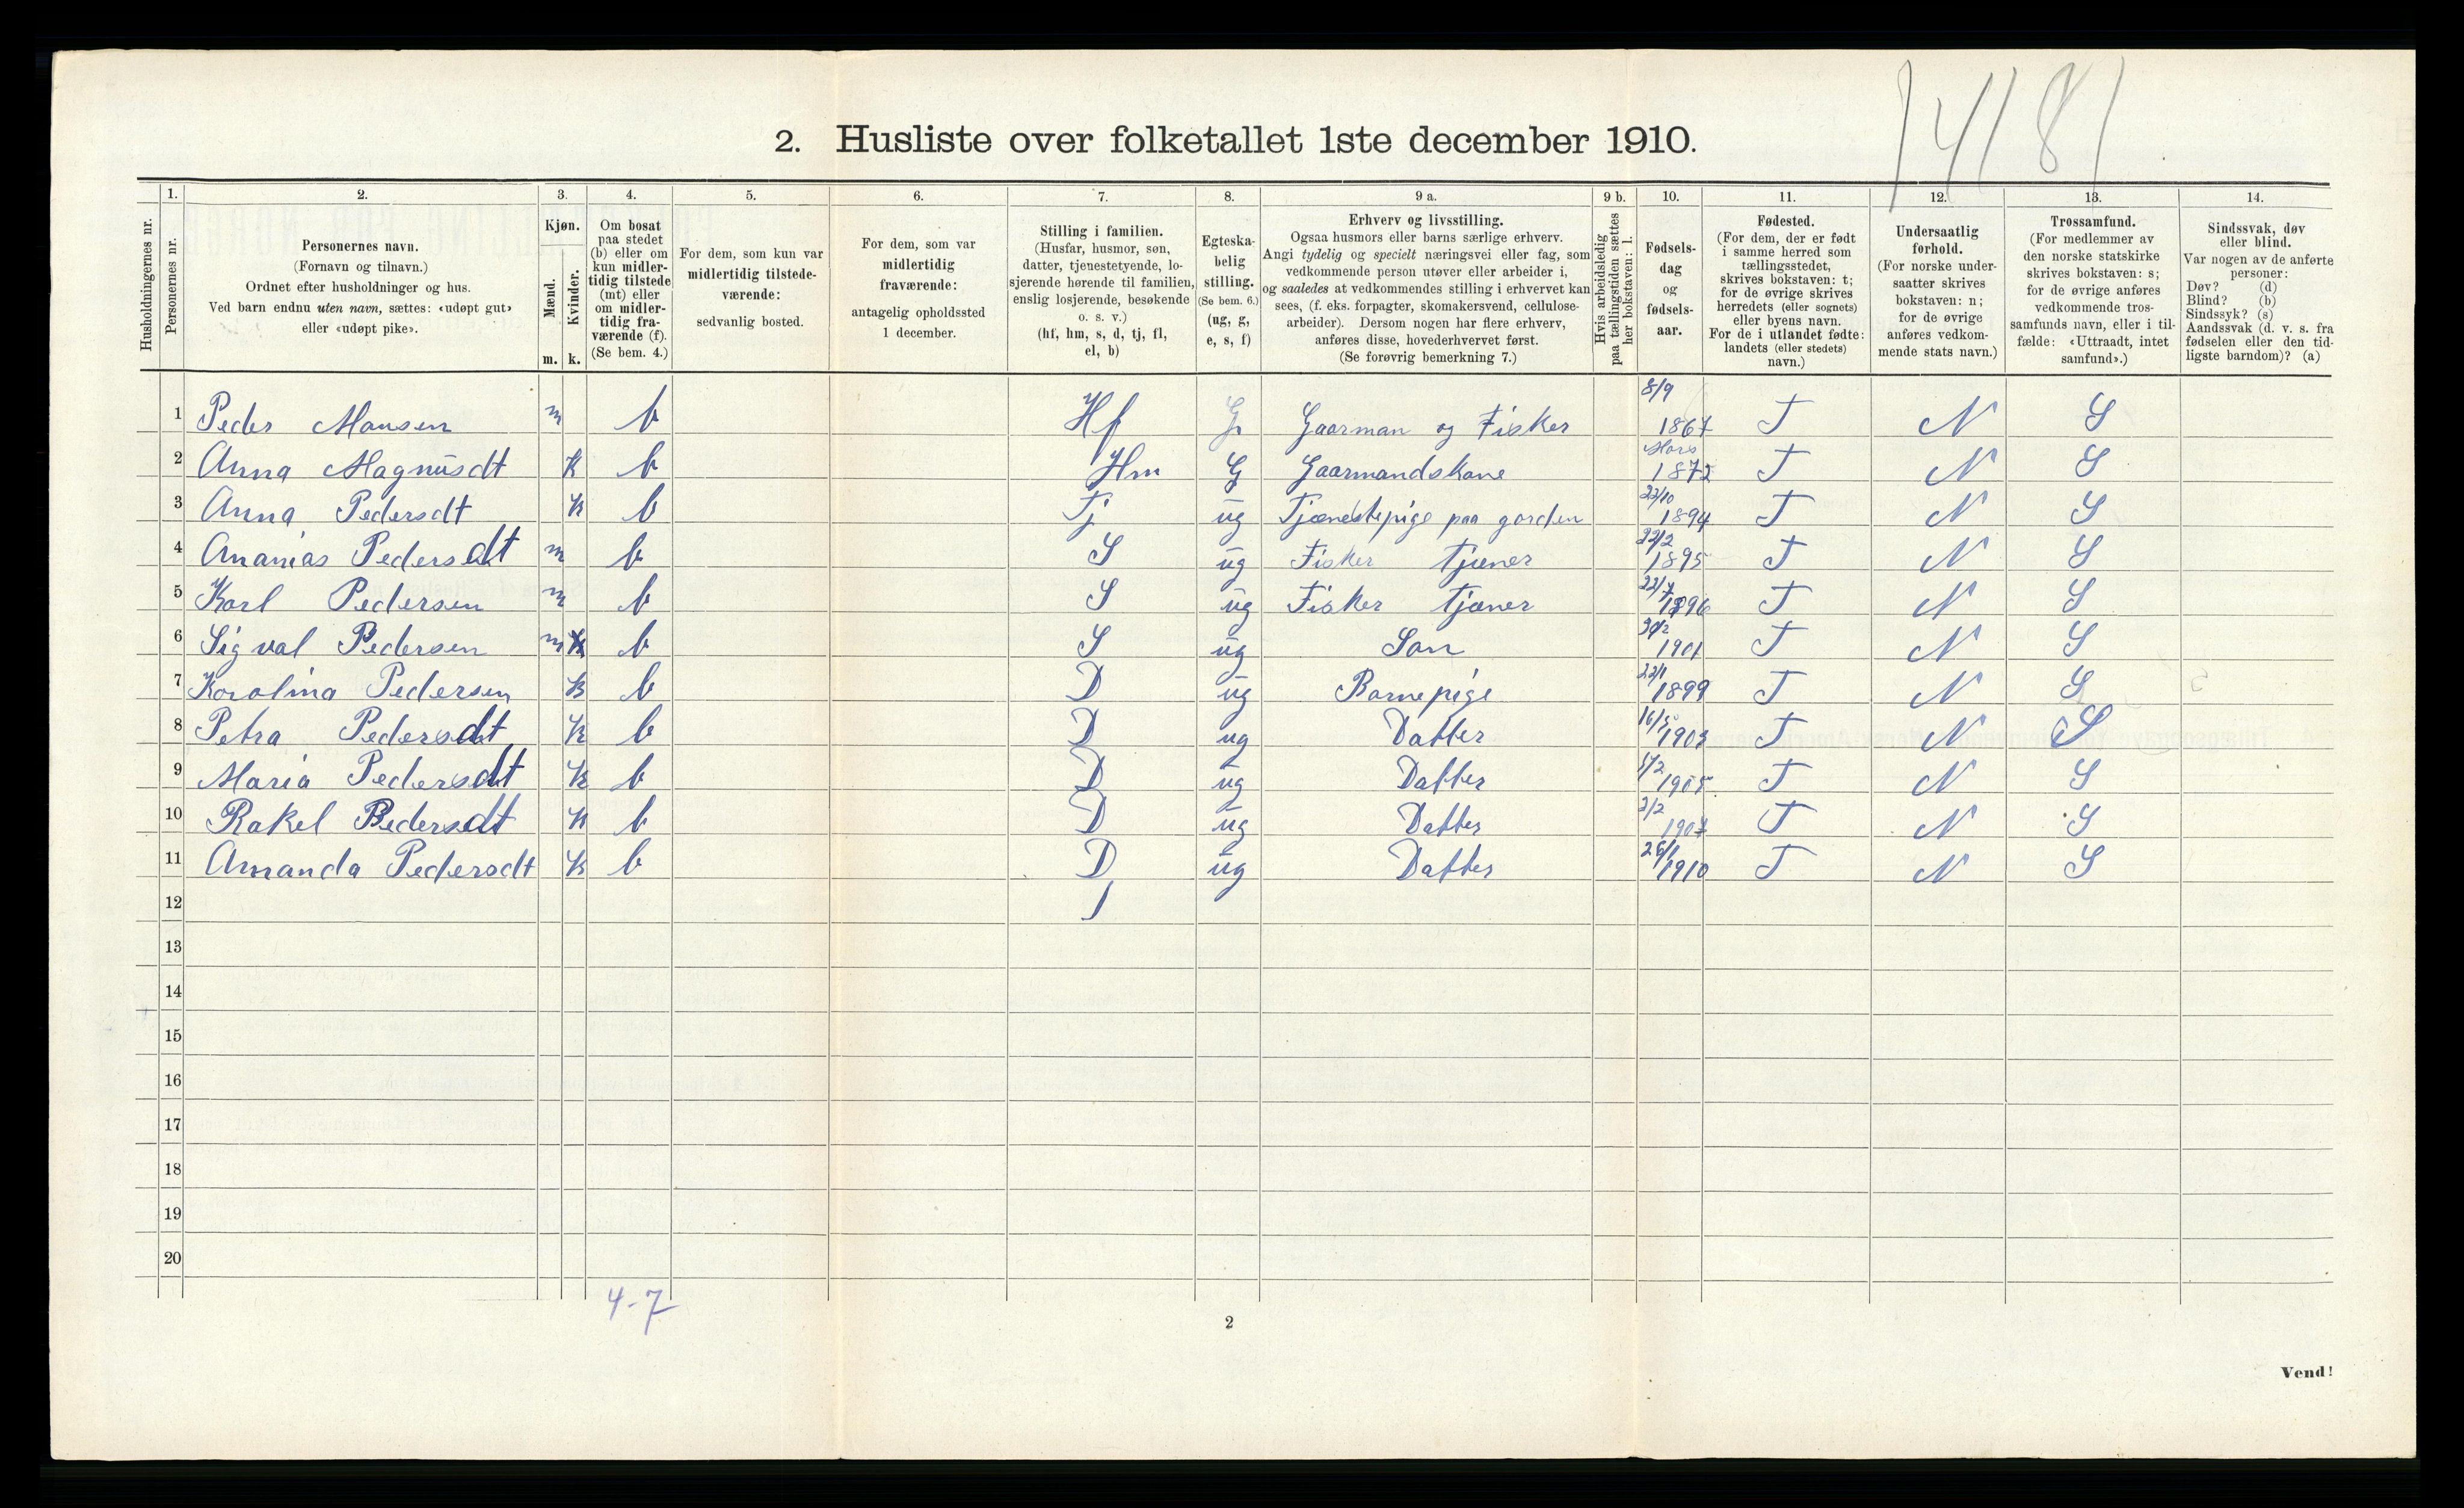 14181
2. Husliste over folketallet 1ste december 1910.
Husholdningernes nr.
1.
Personernes nr.
2.
Personernes navn.
(Fornavn og tilnavn.)
Ordnet efter husholdninger og hus.
Ved barn endnu uten navn, sættes: «udøpt gut»
eller «udøpt pike».
3.
Kjøn.
Mænd.
Kvinder.
m. k.
4.
Om bosat
paa stedet
(b) eller om
kun midler-
tidig tilstede
(mt) eller
om midler-
tidig fra-
værende (f).
(Se bem. 4.)
5.
For dem, som kun var
midlertidig tilstede-
værende:
sedvanlig bosted.
6.
For dem, som var
midlertidig
fraværende:
antagelig opholdssted
1 december.
7.
Stilling i familien.
(Husfar, husmor, søn,
datter, tjenestetyende, lo-
sjerende hørende til familien,
enslig losjerende, besøkende
o. s. v.)
(hf, hm, s, d, tj, fl,
el, b)
8.
Egteska-
belig
stilling.
(Se bem. 6.)
(ug, g,
e, s, f)
9 a.
Erhverv og livsstilling.
Ogsaa husmors eller barns særlige erhverv.
Angi tydelig og specielt næringsvei eller fag, som
vedkommende person utøver eller arbeider i,
og saaledes at vedkommendes stilling i erhvervet kan
sees, (f. eks. forpagter, skomakersvend, cellulose-
arbeider). Dersom nogen har flere erhverv,
anføres disse, hovederhvervet først.
(Se forøvrig bemerkning 7.)
9 b.
Hvis arbeidsledig
paa tællingstiden sættes
her bokstaven: l.
10.
Fødsels-
dag
og
fødsels-
aar.
11.
Fødested.
(For dem, der er født
i samme herred som
tællingsstedet,
skrives bokstaven: t;
for de øvrige skrives
herredets (eller sognets)
eller byens navn.
For de i utlandet fødte:
landets (eller stedets)
navn.)
12.
Undersaatlig
forhold.
(For norske under-
saatter skrives
bokstaven: n;
for de øvrige
anføres vedkom-
mende stats navn.)
13.
Trossamfund.
(For medlemmer av
den norske statskirke
skrives bokstaven: s;
for de øvrige anføres
vedkommende tros-
samfunds navn, eller i til-
fælde: «Uttraadt, intet
samfund».)
14.
Sindssvak, døv
eller blind.
Var nogen av de anførte
personer:
Døv? (d)
Blind? (b)
Sindssyk? (s)
Aandssvak (d. v. s. fra
fødselen eller den tid-
ligste barndom)? (a)
1 Peder Monsen m b Hf G Gaarman og Fisker 8/9 1867 T N S
2 Anna Magnusdt K b Hm G Gaarmandskone Mars 1872 T N S
3 Anna Pedersdt K b Tj ug Tjenestepige paa gorden 23/10 1894 T N S
4 Ananias Pedersdt m b S ug Fisker tjener 22/2 1895 T N S
5 Karl Pedersen m b S ug Fisker tjener 22/7 1896 T N S
6 Sigval Pedersen m b S ug Søn 1901 T N S
7 Karolina Pedersen K b D ug Barnepige 22/1 1899 T N S
8 Petra Pedersdt K b D ug Datter 16/5 1903 T N S
9 Maria Pedersdt K b D ug Datter 1905 T N S
10 Rakel Pedersdt K b D ug Datter 2/2 1907 T N S
11 Amanda Pedersdt K b D ug Datter 26/1 1910 T N S
12
13
14
15
16
17
18
19
20
4-7
2
Vend!